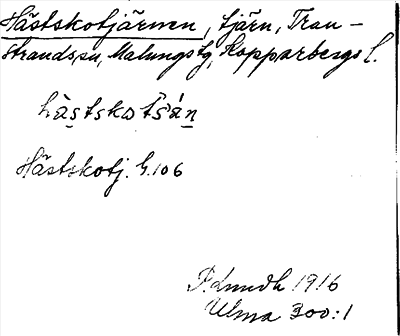 Hästskotjärnen, tjärn, Tran-
strands sn, Malungs tg, Kopparbergs l.
hàstskotšán
Hästskotj. G. 106
P. Lundh 1916
Ulma 300:1